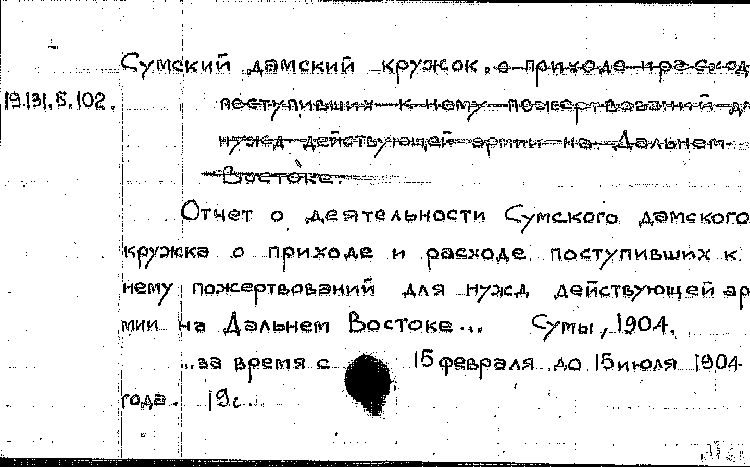 Сумский дамский кружок. о приходе и расход
19.131.5.102.
поступивших к нему пожертвований дл
нужд действующей армии на Дальнем
Востоке.
Отчет о деятельности Сумского дамского
кружка о приходе и расходе поступивших к
нему пожертвований для нужд действующей ар
мии на Дальнем Востоке... Сумы, 1904.
...за время с 15 февраля до 15 июля 1904
года. 19с.